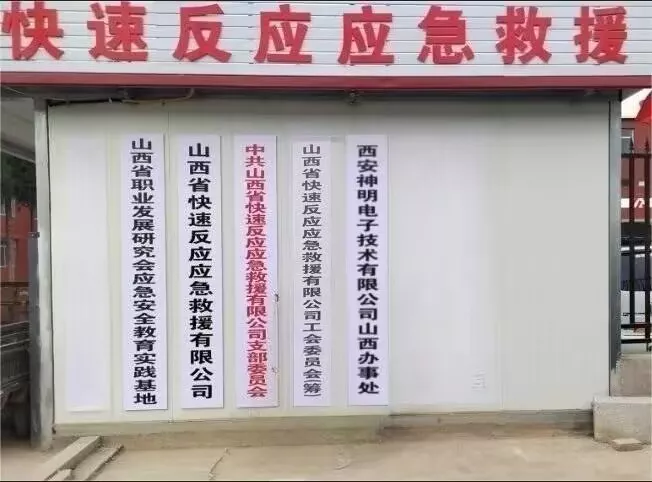 快速反应应急救援
山西省职业发展研究会应急安全教育实践基地
山西省快速反应应急救援有限公司
中共山西省快速反应应急救援有限公司支部委员会
山西省快速反应应急救援有限公司工会委员会(筹)
西安神明电子技术有限公司山西办事处